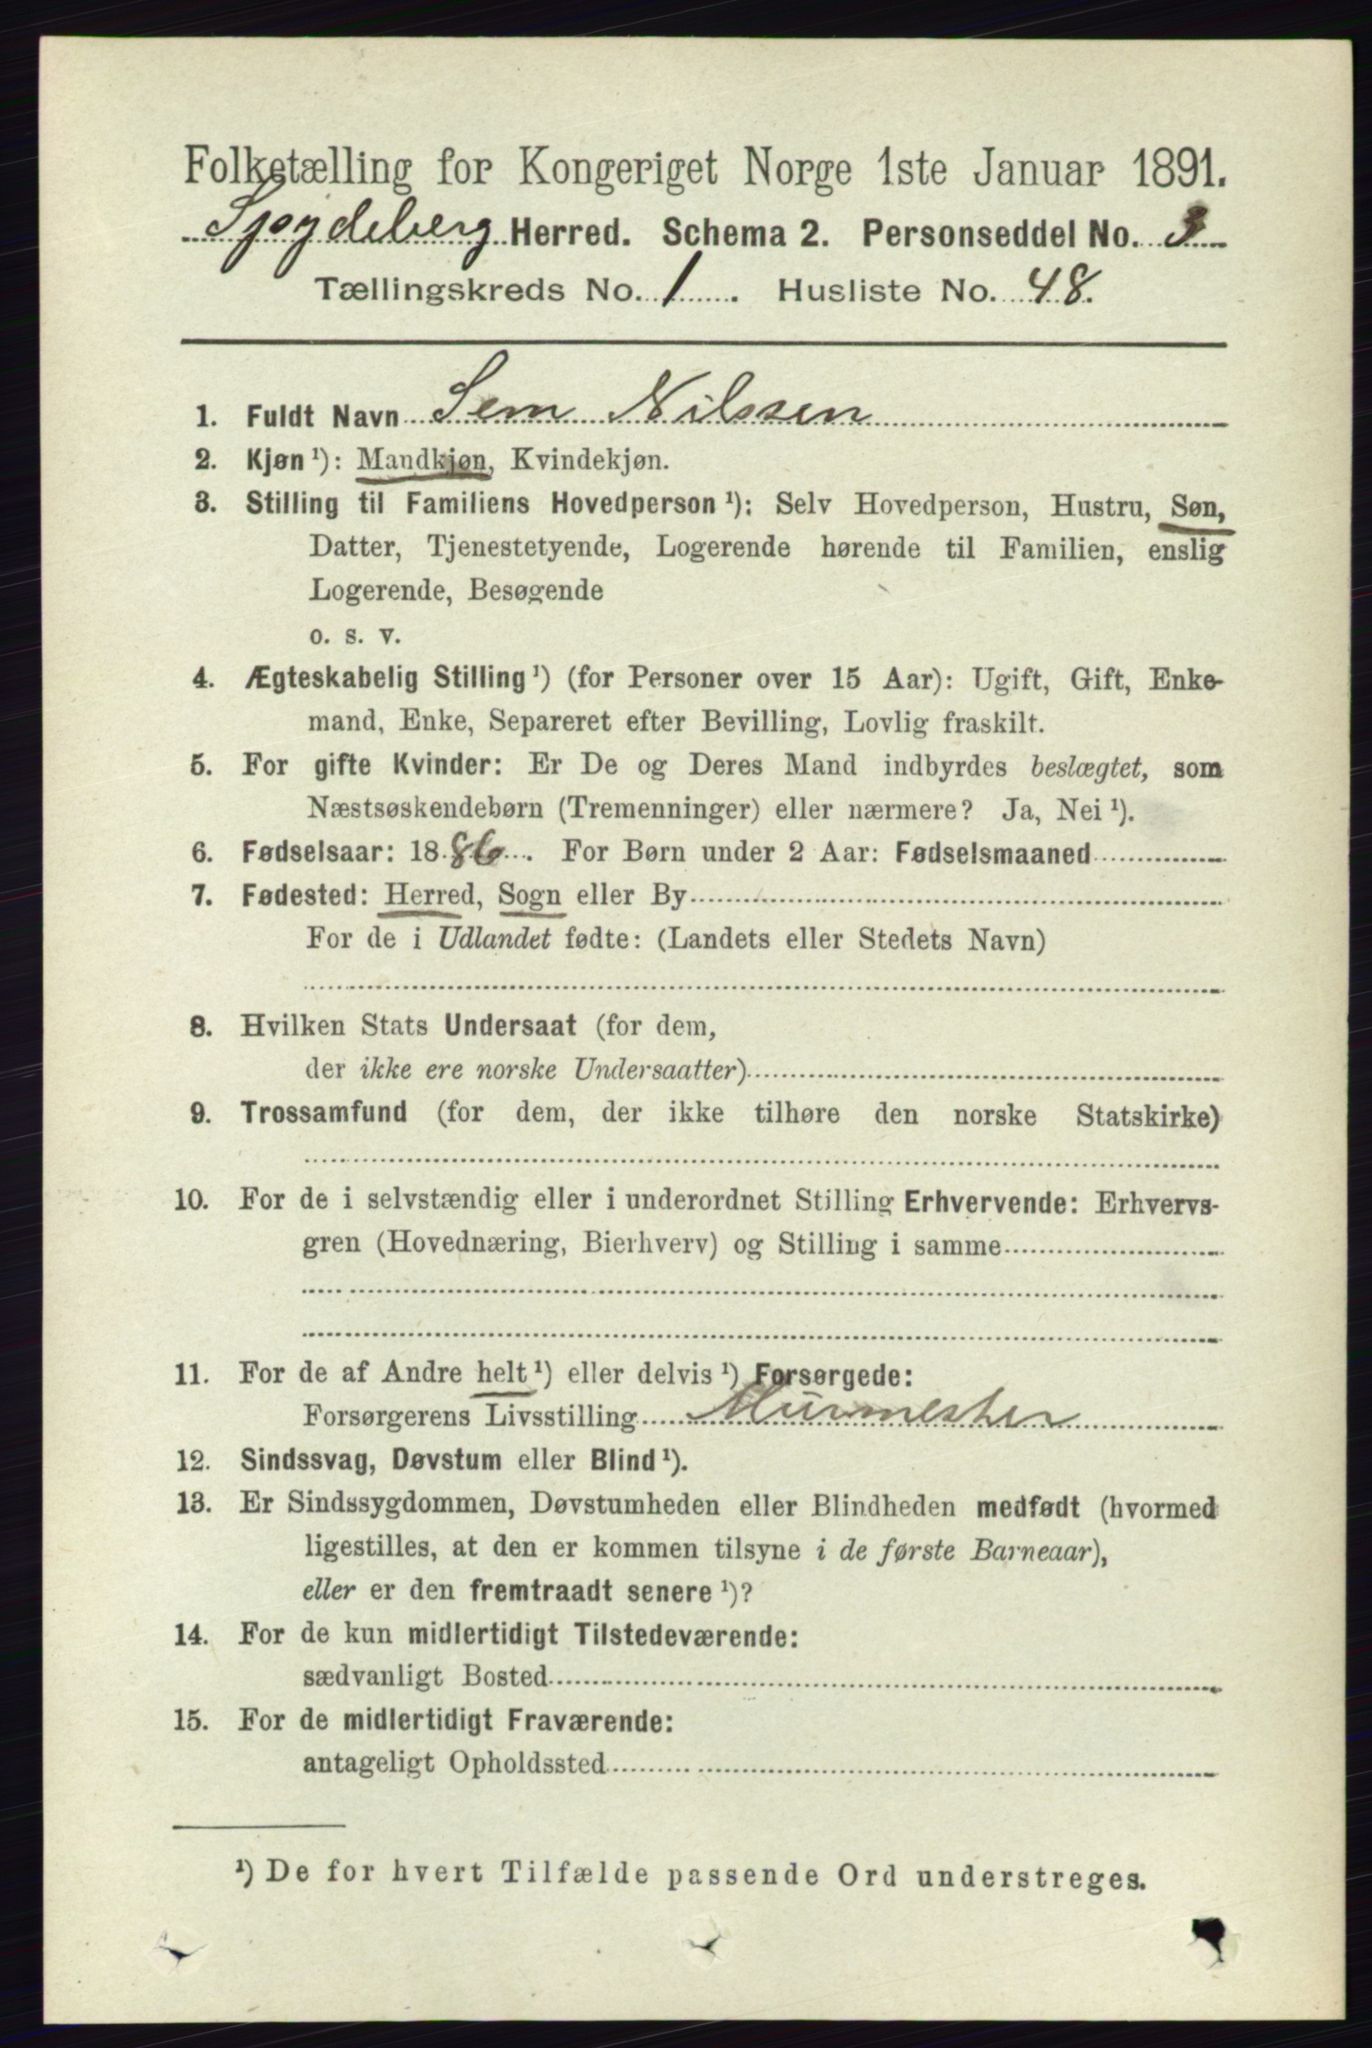 Folketælling for Kongeriget Norge 1ste Januar 1891.
Spydeberg Herred. Schema 2. Personseddel No. 3
Tællingskreds No. 1. Husliste No. 48.
1. Fuldt Navn Sem Nilssen
2. Kjøn ¹): Mandkjøn, Kvindekjøn.
3. Stilling til Familiens Hovedperson ¹): Selv Hovedperson, Hustru, Søn,
Datter, Tjenestetyende, Logerende hørende til Familien, enslig
Logerende, Besøgende
o. s. v.
4. Ægteskabelig Stilling ¹) (for Personer over 15 Aar): Ugift, Gift, Enke-
mand, Enke, Separeret efter Bevilling, Lovlig fraskilt.
5. For gifte Kvinder: Er De og Deres Mand indbyrdes beslægtet, som
Næstsøskendebørn (Tremenninger) eller nærmere? Ja, Nei ¹).
6. Fødselsaar: 1886. For Børn under 2 Aar: Fødselsmaaned
7. Fødested: Herred, Sogn eller By
For de i Udlandet fødte: (Landets eller Stedets Navn)
8. Hvilken Stats Undersaat (for dem,
der ikke ere norske Undersaatter)
9. Trossamfund (for dem, der ikke tilhøre den norske Statskirke)
10. For de i selvstændig eller i underordnet Stilling Erhvervende: Erhvervs-
gren (Hovednæring, Bierhverv) og Stilling i samme
11. For de af Andre helt ¹) eller delvis ¹) Forsørgede:
Forsørgerens Livsstilling Murmester
12. Sindssvag, Døvstum eller Blind ¹).
13. Er Sindssygdommen, Døvstumheden eller Blindheden medfødt (hvormed
ligestilles, at den er kommen tilsyne i de første Barneaar),
eller er den fremtraadt senere ¹)?
14. For de kun midlertidigt Tilstedeværende:
sædvanligt Bosted
15. For de midlertidigt Fraværende:
antageligt Opholdssted
¹) De for hvert Tilfælde passende Ord understreges.